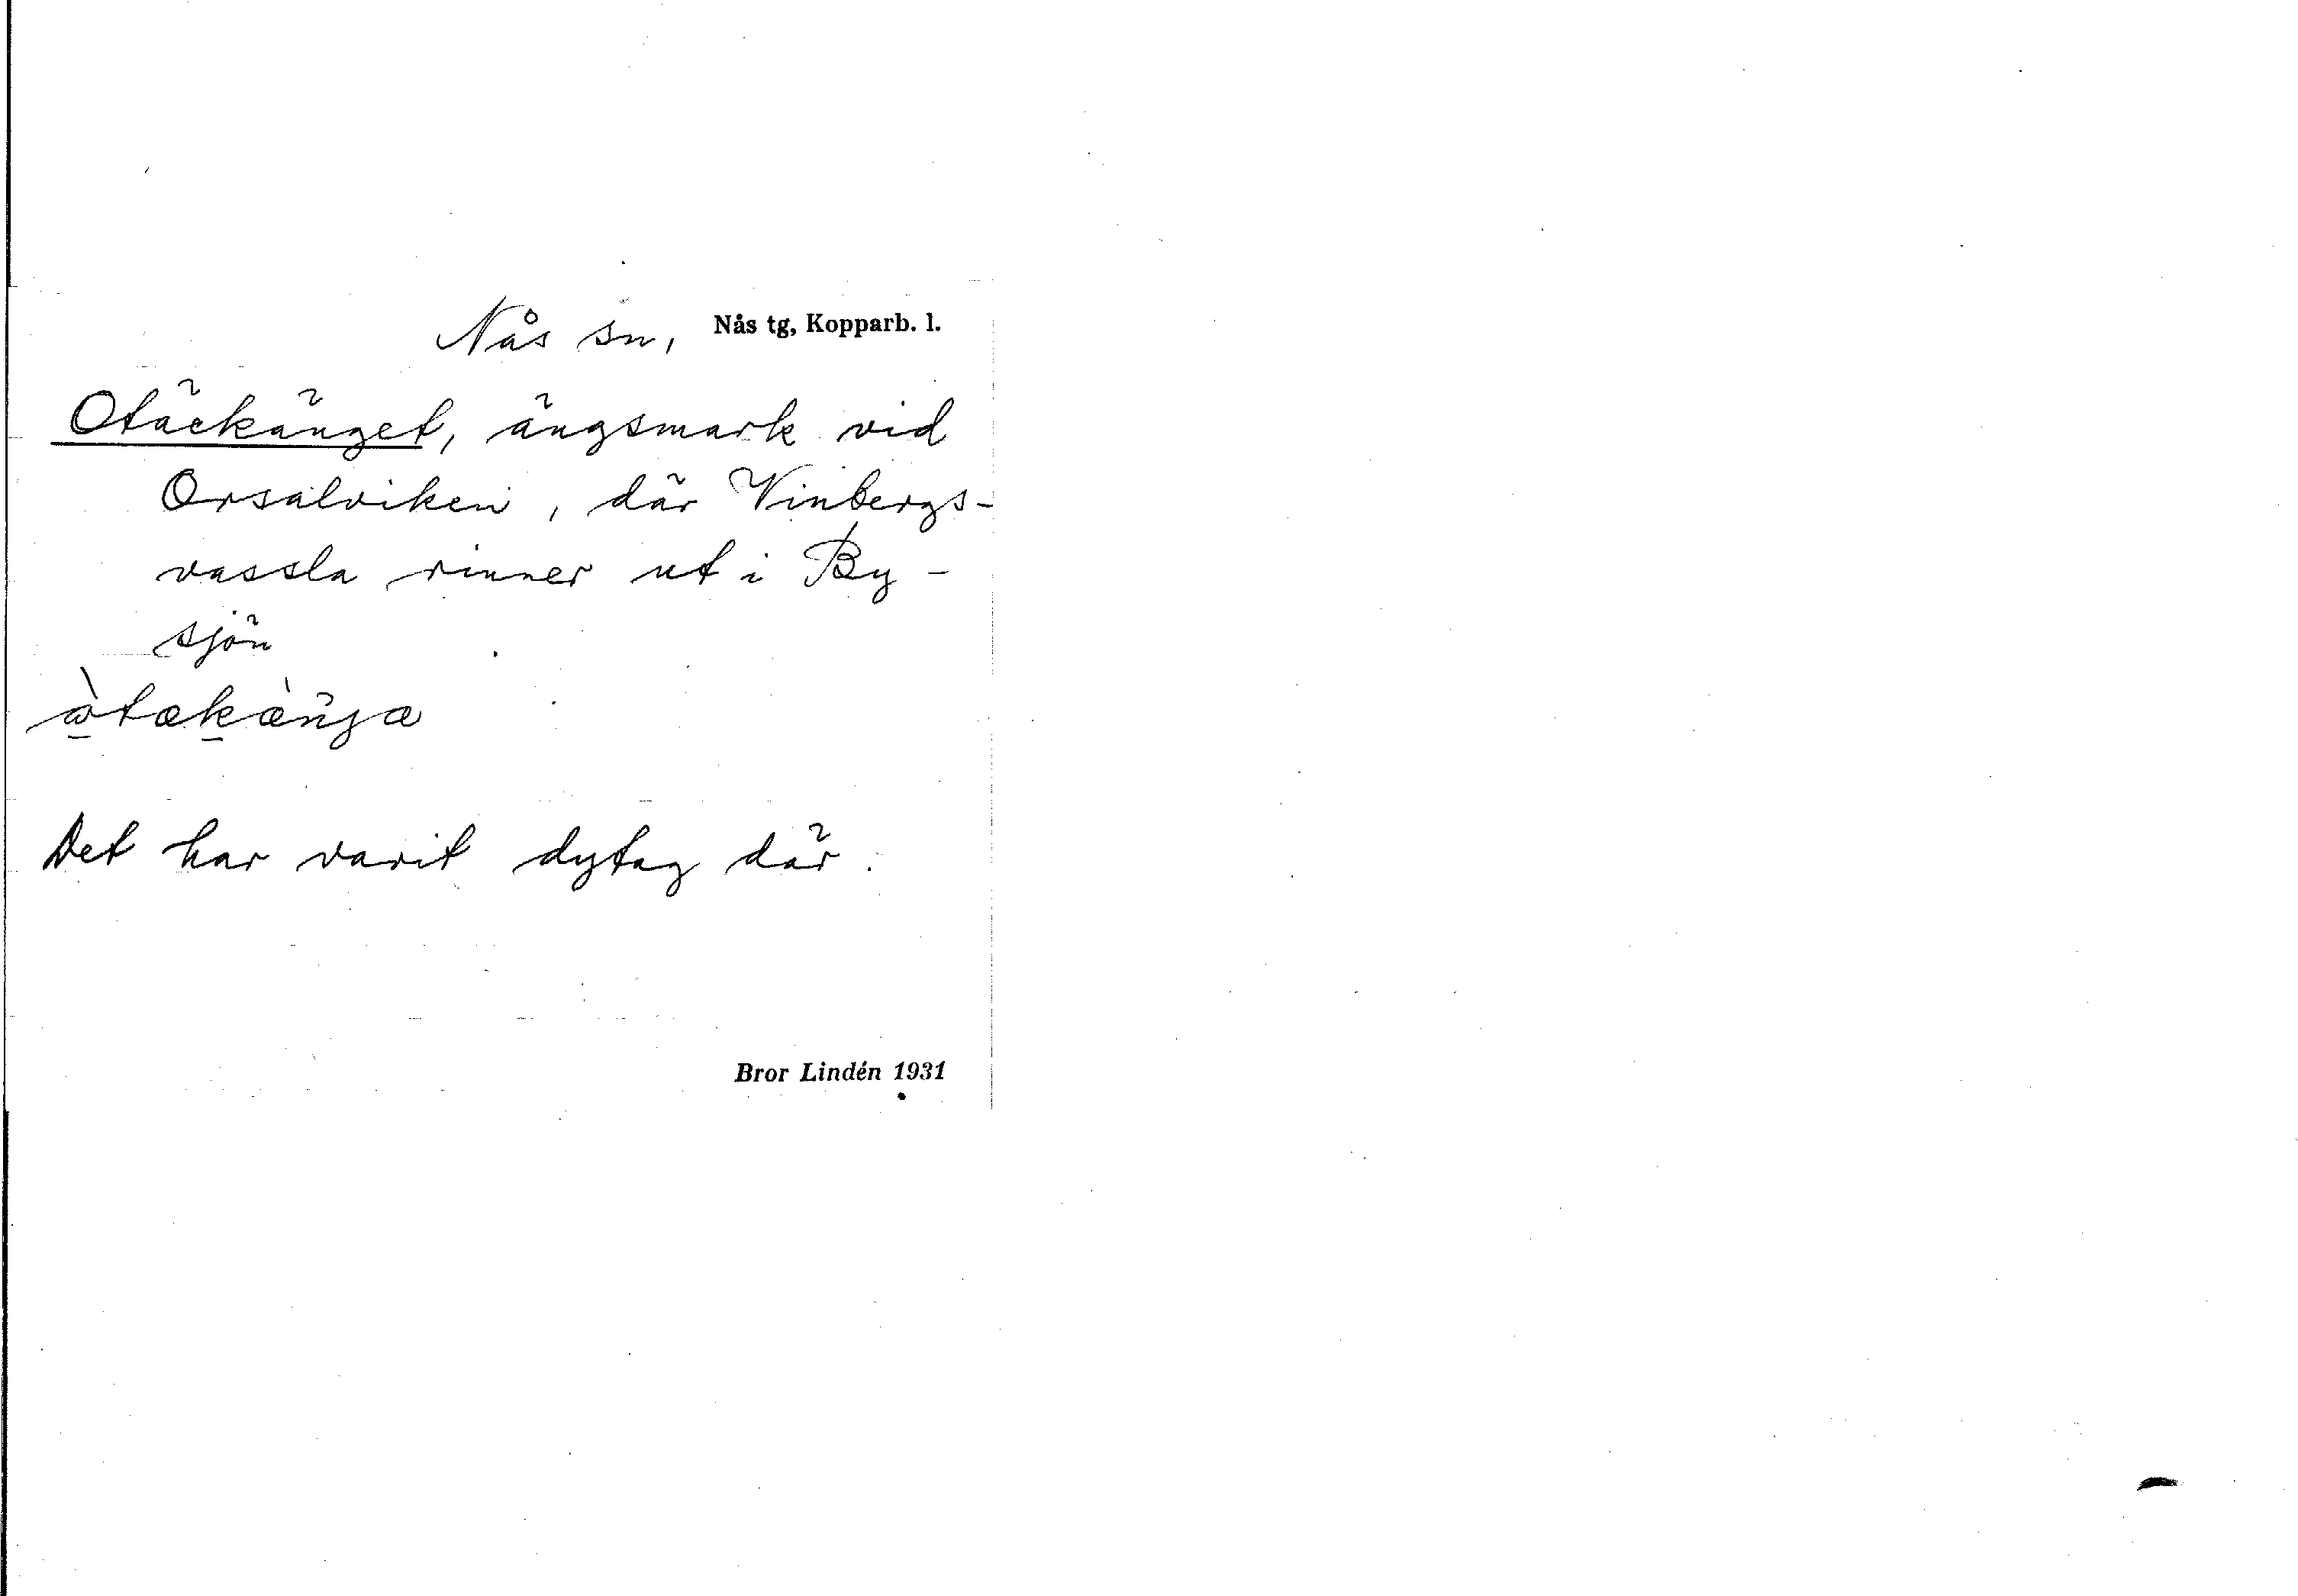 Nås sn, Nås tg, Kopparb. l.
Otäckänget, ängsmark vid
Orsalviken, där Vinbergs-
vassla rinner ut i By-
sjön
Det har varit dytag där.
Bror Lindén 1931